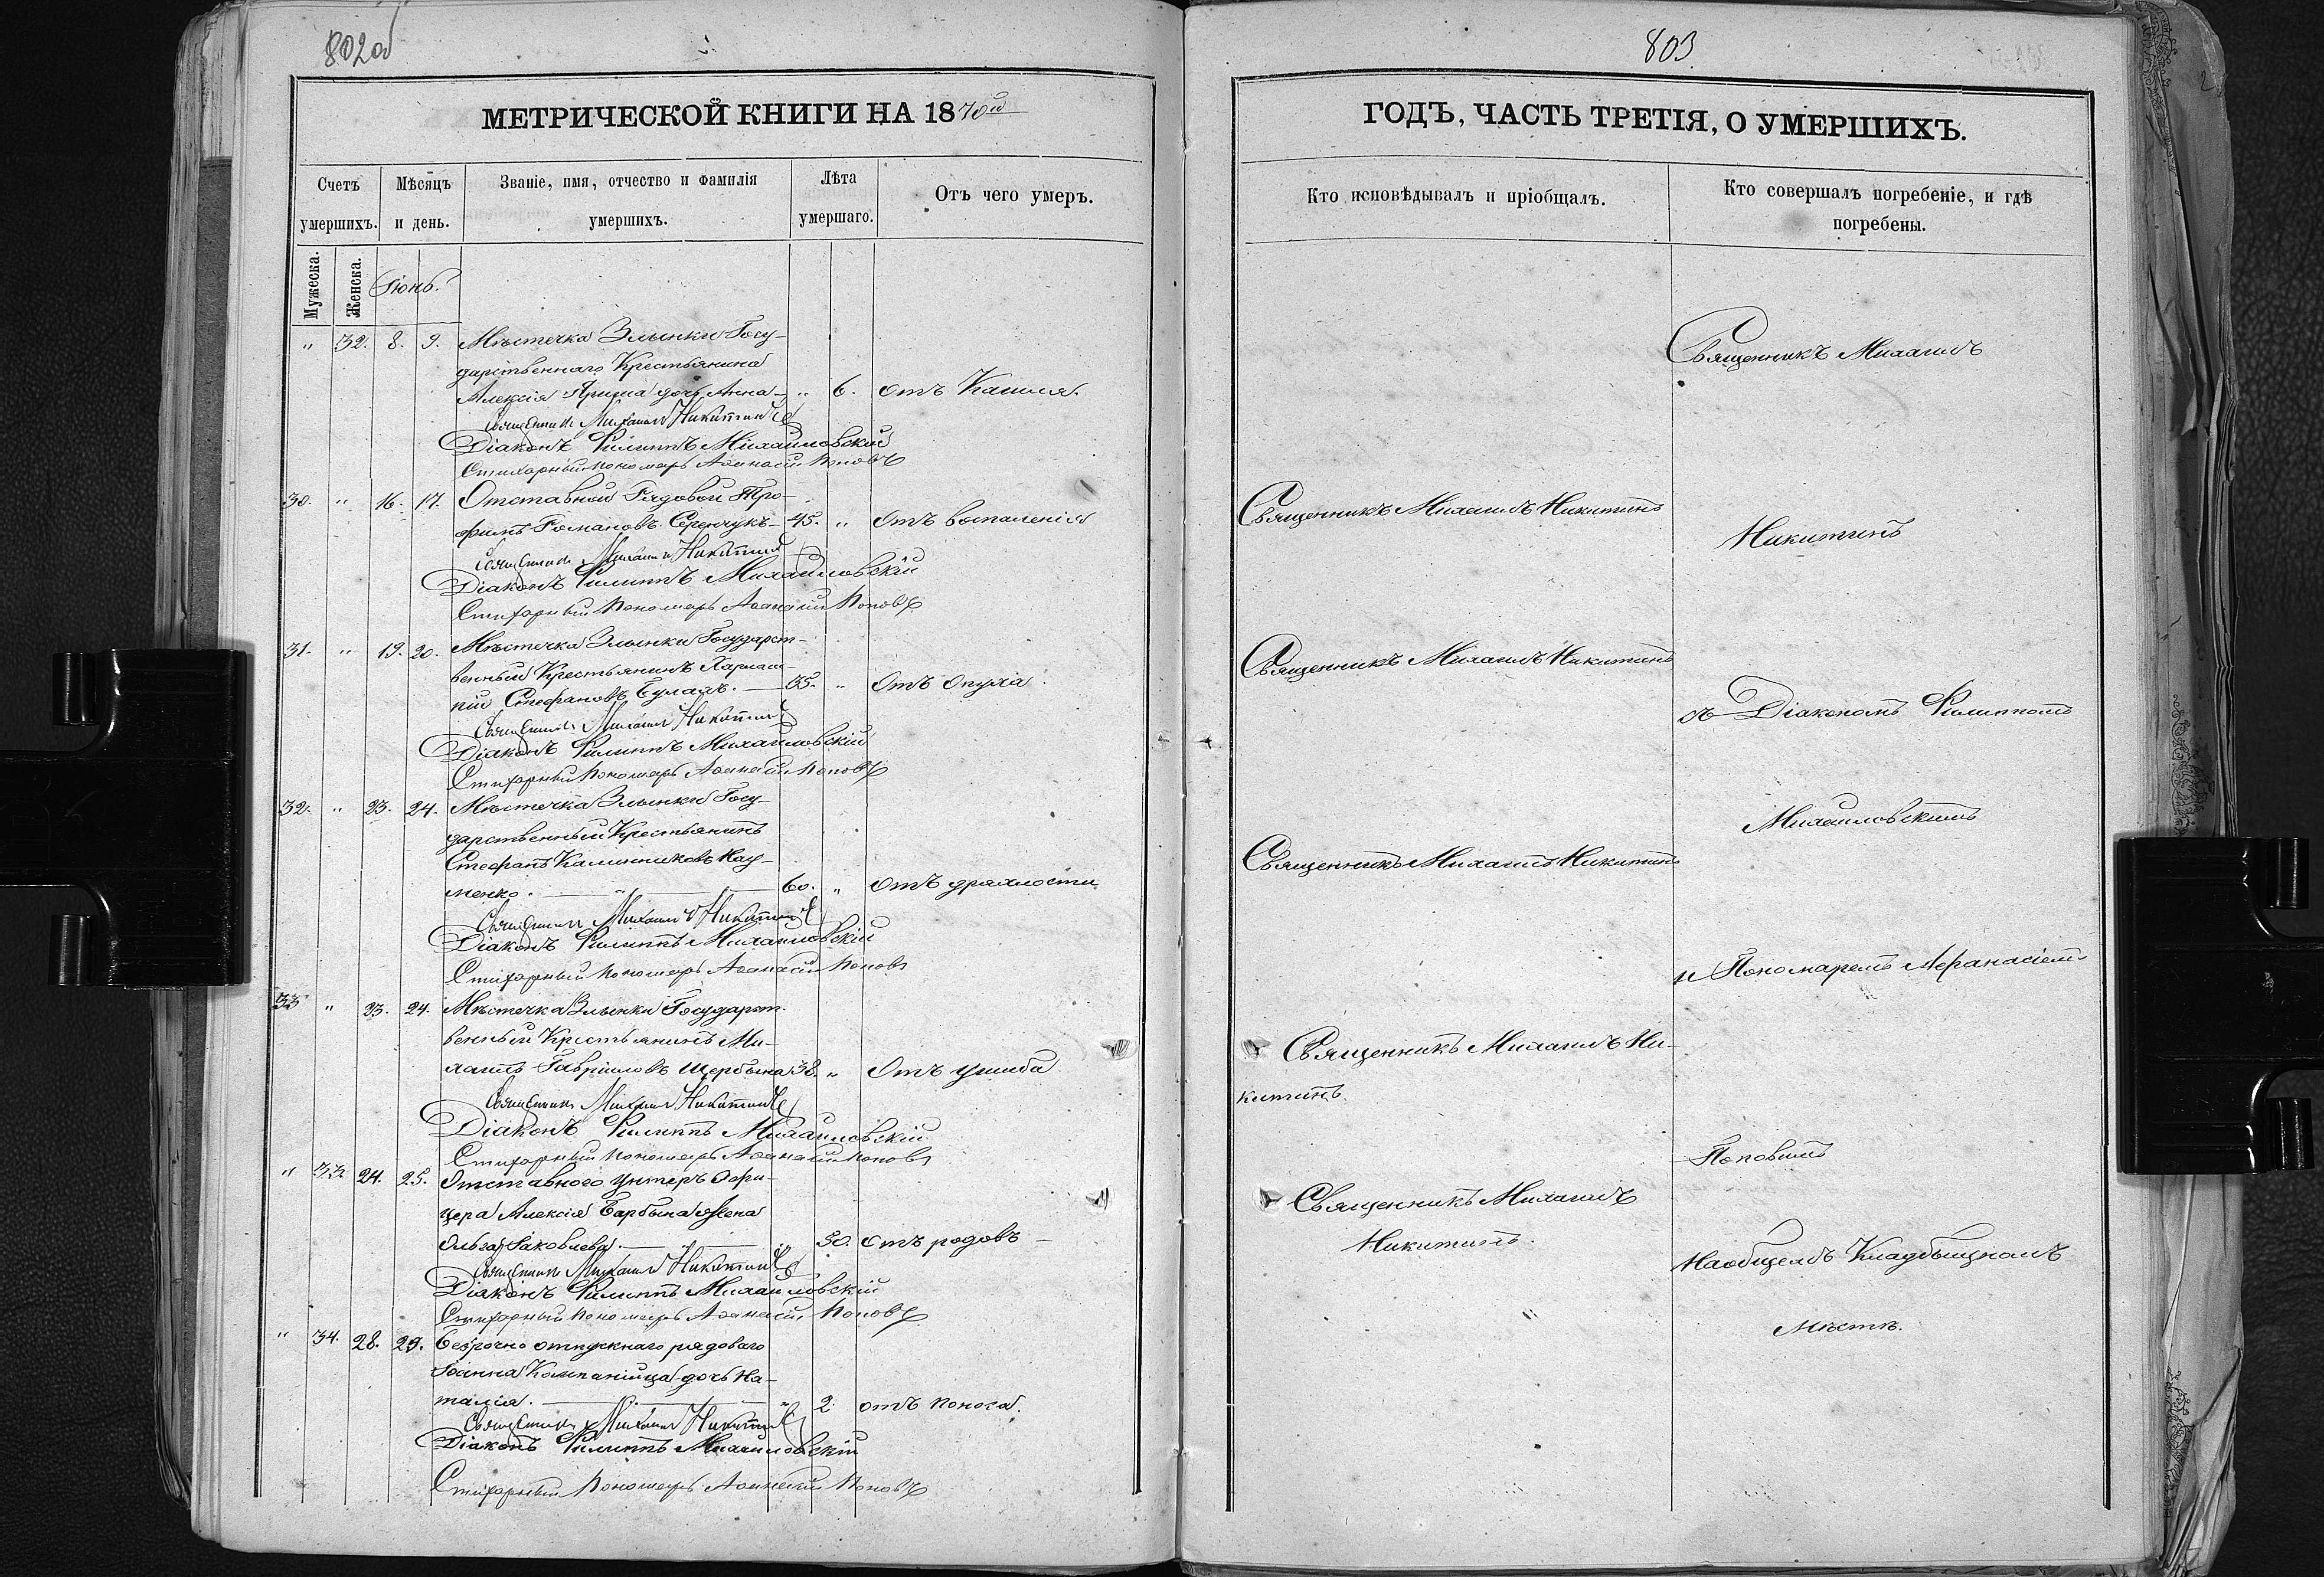 802об
МЕТРИЧЕСКОЙ КНИГИ НА 1870й
Счетъ умершихъ.
Мѣсяцъ и день.
Званіе, имя, отчество и фамилія умершихъ.
Лѣта умершаго.
Отъ чего умеръ.
Мужеска.
Женска.
Іюнь.
" 32. 8. 9. Мѣстечка Злынки Госу-
дарственнаго Крестьянина
Алексія Ярища дочь Анна - " 6. отъ Кашля.
Священникъ Михаилъ Никитинъ
Діаконъ Филиппъ Михайловскій
Стихарный Пономарь Аѳанасій Поповъ
30. " 16. 17. Отставной Рядовой Тро-
фимъ Романовъ Серенчукъ - 45. " Отъ воспаленія
Священникъ Михаилъ Никитинъ
Діаконъ Филиппъ Михайловскій
Стихарный Пономарь Аѳанасій Поповъ
31. " 19. 20. Мѣстечка Злынки Государст-
венный Крестьянинъ Харлам-
пій Стефановъ Булахъ. — 35. " Отъ Опуха.
Священникъ Михаилъ Никитинъ
Діаконъ Филиппъ Михайловскій
Стихарный Пономарь Аѳанасій Поповъ
32. " 23. 24. Мѣстечка Злынки Госу-
дарственный Крестьянинъ
Стефанъ Калинниковъ Нау-
менко. — " — 60. " Отъ дряхлости
Священникъ Михаилъ Никитинъ
Діаконъ Филиппъ Михайловскій
Стихарный Пономарь Аѳанасій Поповъ
33 " 23. 24. Мѣстечка Злынки Государст-
венный Крестьянинъ Ми-
хаилъ Гавріиловъ Щербына 38. " Отъ ушиба
Священникъ Михаилъ Никитинъ
Діаконъ Филиппъ Михайловскій
Стихарный Пономарь Аѳанасій Поповъ
" 33. 24. 25. Отставнаго Унтеръ Офи-
цера Алексія Барбына Жена
Ольга Іаковлева. — " 50. отъ родовъ -
Священникъ Михаилъ Никитинъ
Діаконъ Филиппъ Михайловскій
Стихарный Пономарь Аѳанасій Поповъ
" 34. 28. 29. безрочно отпускнаго рядоваго
Іоанна Компанійца дочь На-
талія. — " 2. отъ поноса.
Священникъ Михаилъ Никитинъ
Діаконъ Филиппъ Михайловскій
Стихарный Пономарь Аѳанасій Поповъ
803
ГОДЪ, ЧАСТЬ ТРЕТІЯ, О УМЕРШИХЪ.
Кто исповѣдывалъ и пріобщалъ.
Кто совершалъ погребеніе, и гдѣ
погребены.
Священникъ Михаилъ
Священникъ Михаилъ Никитинъ
Никитинъ
Священникъ Михаилъ Никитинъ
съ Діакономъ Филиппомъ
Михайловскимъ
Священникъ Михаилъ Никитинъ
и Пономаремъ Афанасіемъ
Священникъ Михаилъ Ни-
китинъ.
Поповымъ
Священникъ Михаилъ
Никитинъ.
На общемъ Кладбищномъ
Мѣстѣ.